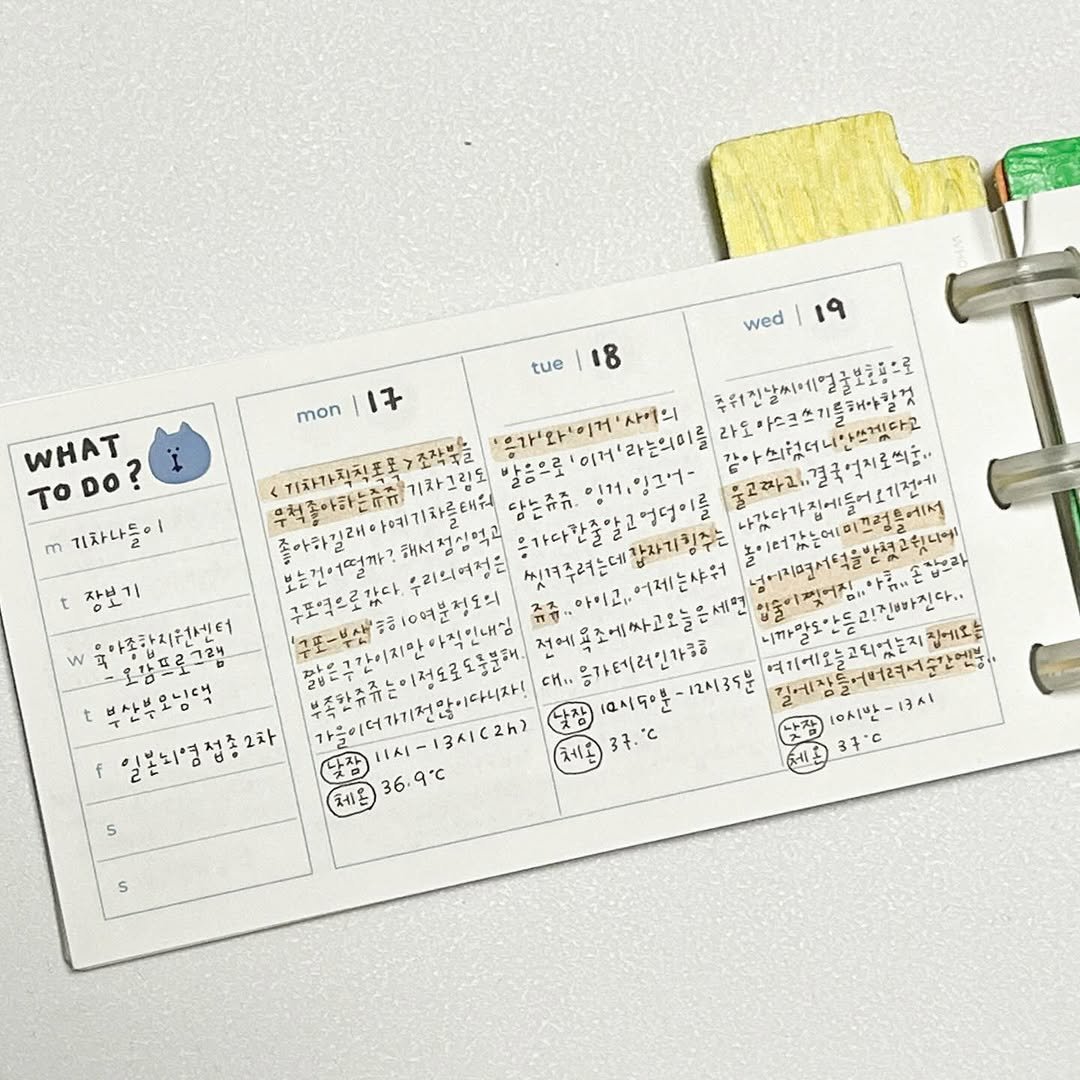 WHAT
TO DO?
m 기차나들이
t 장보기
w 육아종합지원센터
- 오감프로그램
t 부산부모님댁
f 일본뇌염접종2차
s
s
mon | 17
<기차가칙칙폭폭> 조작북을
무척좋아하는쥬쥬 기차그림도
좋아하길래아예기차를태워
보는건어떨까? 해서점심먹고
구포역으로갔다. 우리의여정은
'구포-부산' ㅎㅎ 10여분정도의
짧은구간이지만아직인내심
부족한쥬쥬는이정도로도충분해.
가을이더가기전많이다니자!
낮잠 11시-13시(2h)
체온 36.9°C
tue | 18
'응가'와'이거'사이의
발음으로'이거'라는의미를
담는쥬쥬. 잉거, 잉그어-
응가다한줄알고엉덩이를
씻겨주려는데갑자기힝주는
쥬쥬.. 아이고.. 어제는샤워
전에욕조에싸고오늘은세면
대.. 응가테러인가ㅎㅎ
낮잠 10시50분-12시35분
체온 37.°C
wed | 19
추워진날씨에얼굴보호용으로
라도마스크쓰기를해야할것
같아씌웠더니안쓰겠다고
울고짜고.. 결국억지로씌움..
나갔다가집에들어오기전에
놀이터갔는데미끄럼틀에서
넘어지면서턱을받쳤고윗니에
입술이찢어짐.. 아휴.. 손잡으라
니까말도안듣고!진빠진다..
여기에오늘고되었는지집에오는
길에잠들어버려서순간멘붕..
낮잠 10시반-13시
체온 37°C